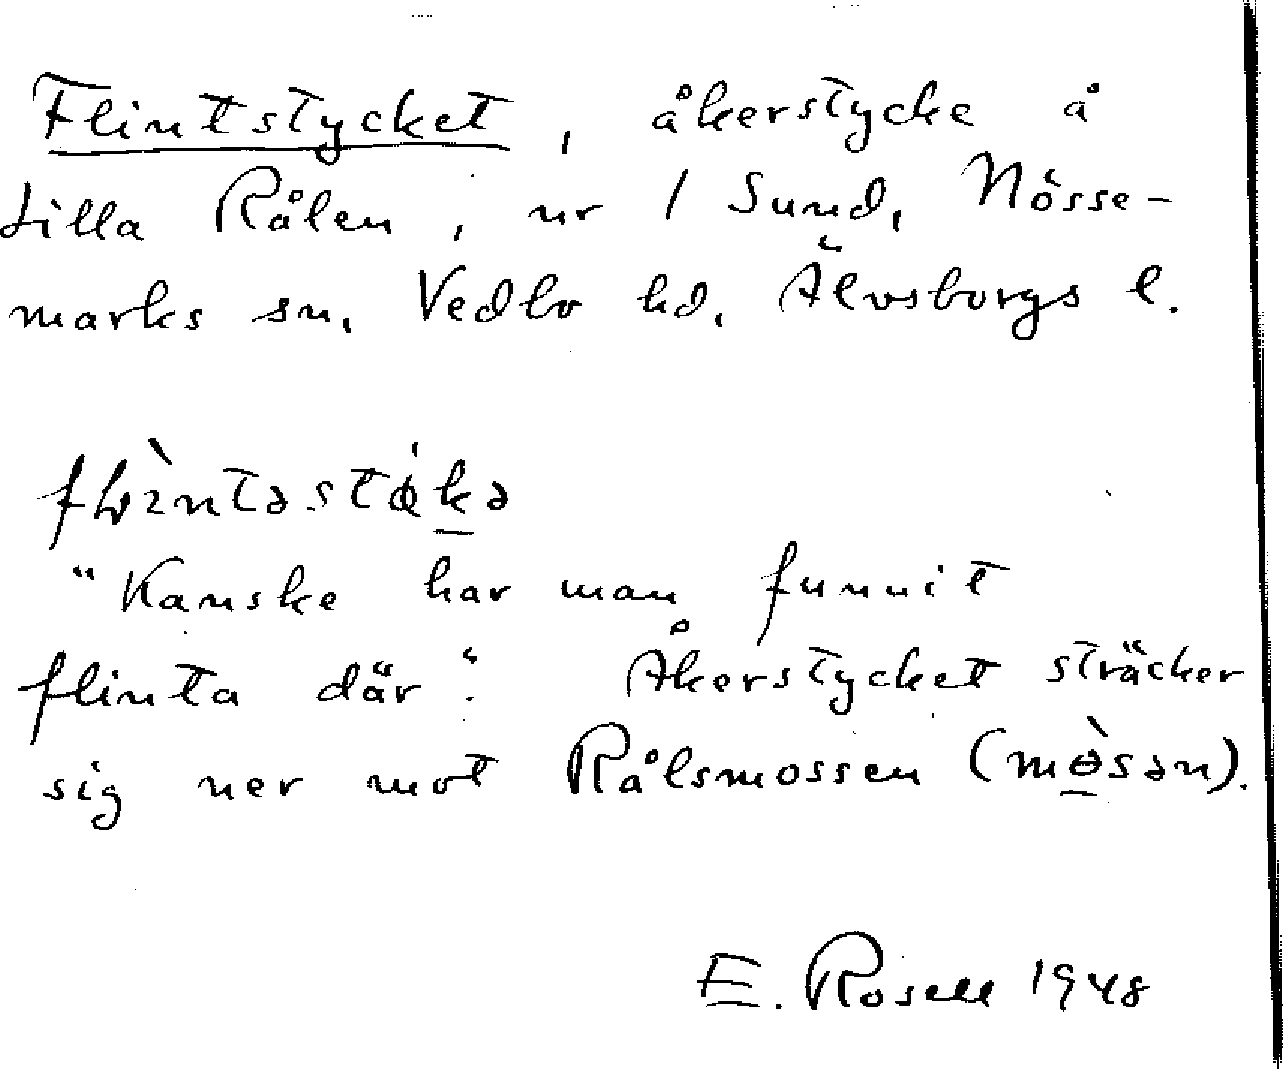 Flintstycket, åkerstycke å
Lilla Rålen, nr 1 Sund, Nösse-
marks sn, Vedbo hd, Älvsborgs l.
"Kanske har man funnit
flinta där". Åkerstycket sträcker
sig ner mot Rålsmossen (mɵ̀sən).
E. Rosell 1948